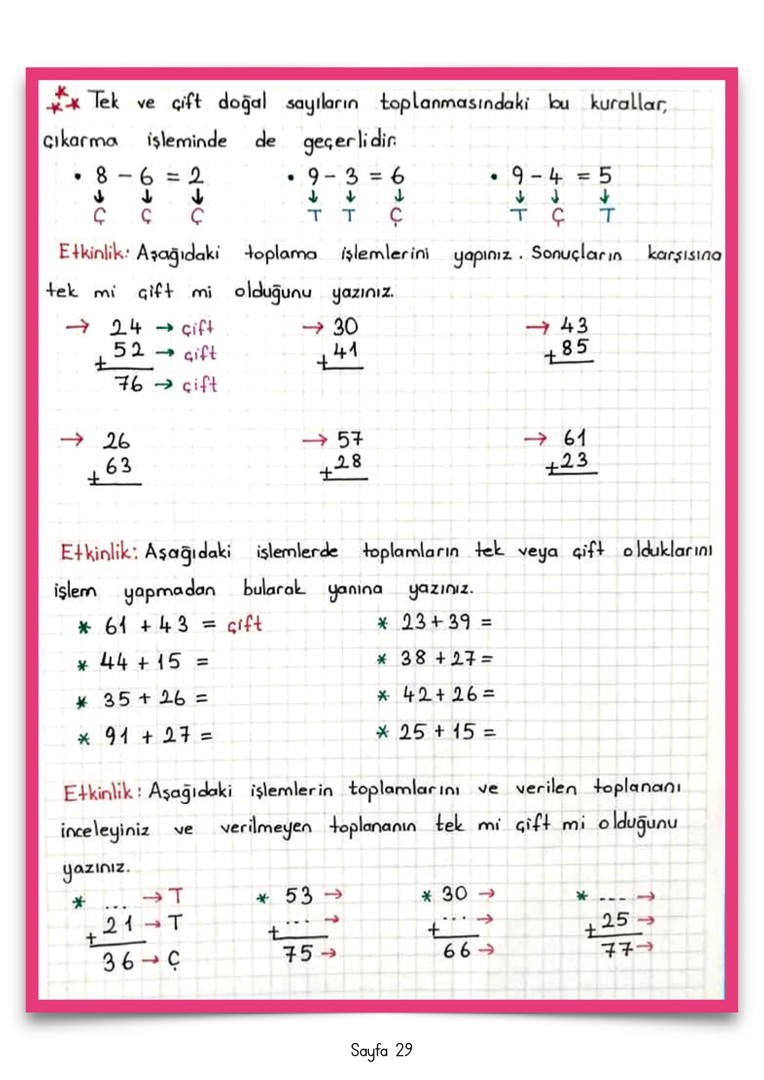 Tek ve çift doğal sayıların toplanmasındaki bu kurallar,
çıkarma işleminde de geçerlidir.
• 8 - 6 = 2 • 9 - 3 = 6 • 9 - 4 = 5
↓ ↓ ↓ ↓ ↓ ↓ ↓ ↓ ↓
Ç Ç Ç T T Ç T Ç T
Etkinlik: Aşağıdaki toplama işlemlerini yapınız. Sonuçların karşısına
tek mi çift mi olduğunu yazınız.
→ 24 → çift → 30 → 43
+ 52 → çift + 41 + 85
76 → çift
→ 26 → 57 → 61
+ 63 + 28 + 23
Etkinlik: Aşağıdaki işlemlerde toplamların tek veya çift olduklarını
işlem yapmadan bularak yanına yazınız.
* 61 + 43 = çift * 23 + 39 =
* 44 + 15 = * 38 + 27 =
* 35 + 26 = * 42 + 26 =
* 91 + 27 = * 25 + 15 =
Etkinlik: Aşağıdaki işlemlerin toplamlarını ve verilen toplananı
inceleyiniz ve verilmeyen toplananın tek mi çift mi olduğunu
yazınız.
* ... → T * 53 → * 30 → * ... →
+ 21 → T + ... → + ... → + 25 →
36 → Ç 75 → 66 → 77 →
Sayfa 29